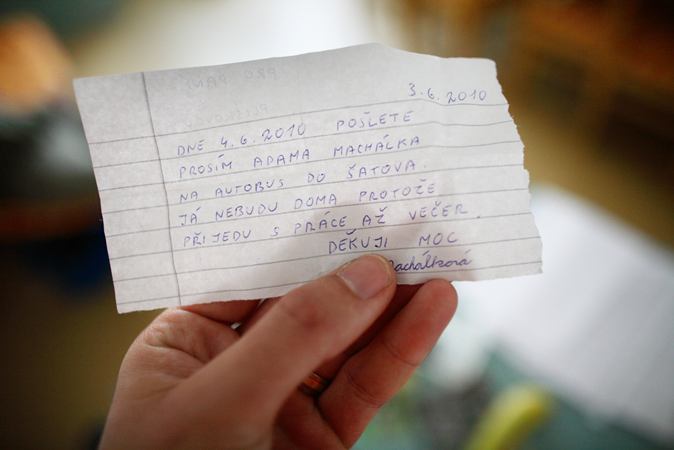 3.6.2010
DNE 4.6.2010 POŠLETE
PROSÍM ADAMA MACHÁLKA
NA AUTOBUS DO ŠATOVA.
JÁ NEBUDU DOMA PROTOŽE
PŘIJEDU S PRÁCE AŽ VEČER.
DĚKUJI MOC
Machálková